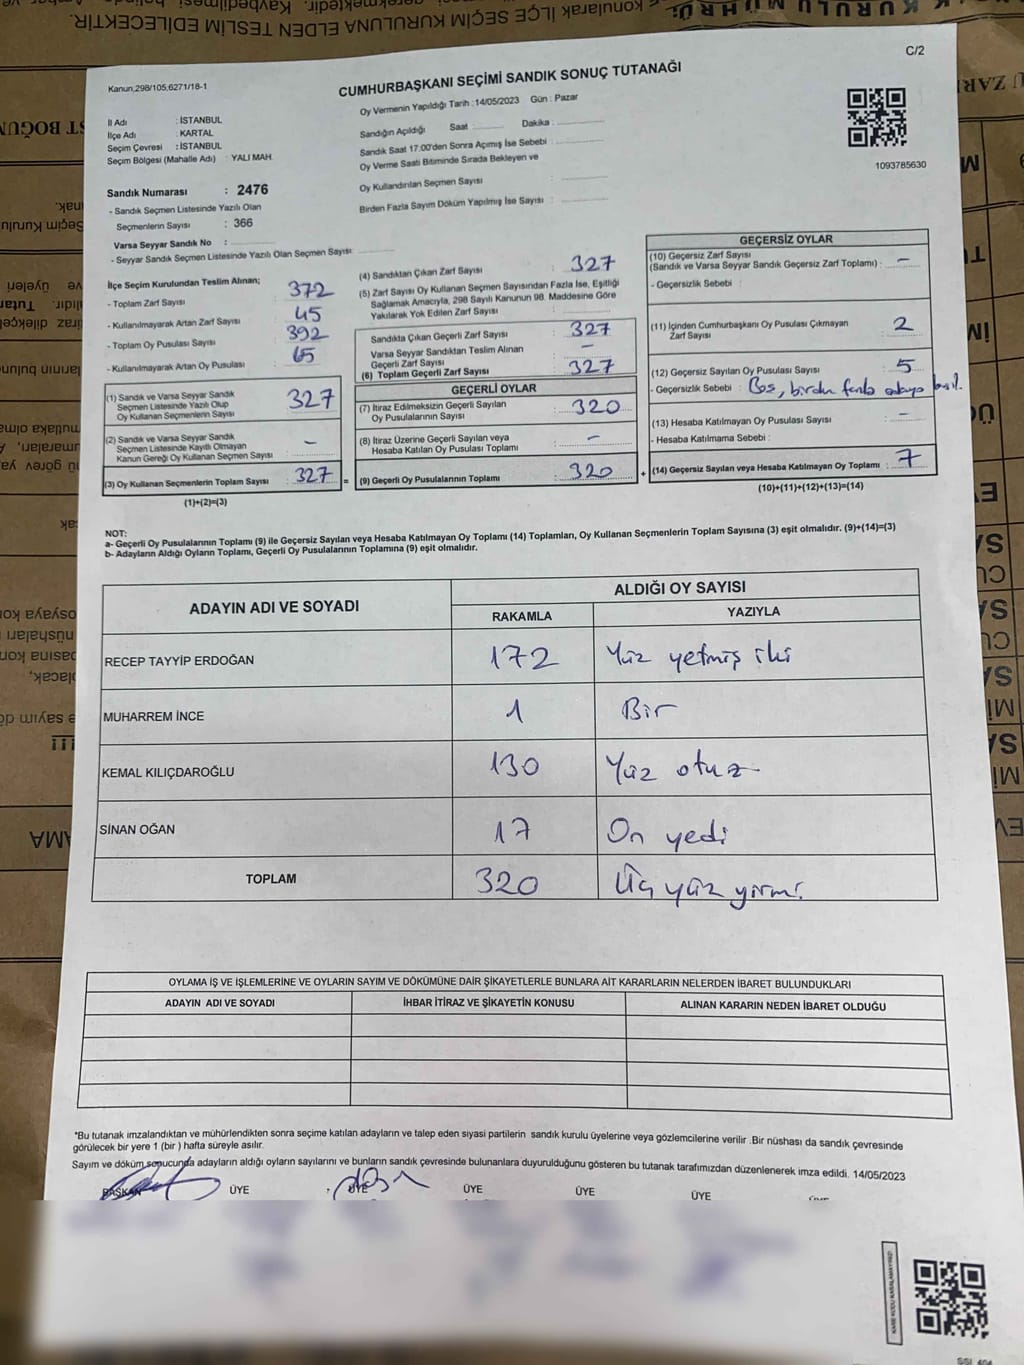 konularak İLÇE SEÇİM KURULUNA ELDEN TESLİM EDİLECEKTİR.
C/2
Kanun,298/105,6271/18-1
CUMHURBAŞKANI SEÇİMİ SANDIK SONUÇ TUTANAĞI
Oy Vermenin Yapıldığı Tarih : 14/05/2023 Gün : Pazar
İl Adı : İSTANBUL
İlçe Adı : KARTAL
Seçim Çevresi : İSTANBUL
Seçim Bölgesi (Mahalle Adı) : YALI MAH.
Sandığın Açıldığı Saat Dakika :
Sandık Saat 17:00'den Sonra Açımış İse Sebebi :
Oy Verme Saati Bitiminde Sırada Bekleyen ve
Oy Kullandırılan Seçmen Sayısı :
Birden Fazla Sayım Döküm Yapılmış İse Sayısı :
1093785630
Sandık Numarası : 2476
- Sandık Seçmen Listesinde Yazılı Olan
Seçmenlerin Sayısı : 366
Varsa Seyyar Sandık No :
- Seyyar Sandık Seçmen Listesinde Yazılı Olan Seçmen Sayısı:
İlçe Seçim Kurulundan Teslim Alınan;
- Toplam Zarf Sayısı : 372
- Kullanılmayarak Artan Zarf Sayısı : 45
- Toplam Oy Pusulası Sayısı : 392
- Kullanılmayarak Artan Oy Pusulası : 65
(1) Sandık ve Varsa Seyyar Sandık
Seçmen Listesinde Yazılı Olup
Oy Kullanan Seçmenlerin Sayısı : 327
(2) Sandık ve Varsa Seyyar Sandık
Seçmen Listesinde Kayıtlı Olmayan
Kanun Gereği Oy Kullanan Seçmen Sayısı : –
(3) Oy Kullanan Seçmenlerin Toplam Sayısı : 327 =
(1)+(2)=(3)
(4) Sandıktan Çıkan Zarf Sayısı : 327
(5) Zarf Sayısı Oy Kullanan Seçmen Sayısından Fazla İse, Eşitliği
Sağlamak Amacıyla, 298 Sayılı Kanunun 98. Maddesine Göre
Yakılarak Yok Edilen Zarf Sayısı :
Sandıkta Çıkan Geçerli Zarf Sayısı : 327
Varsa Seyyar Sandıktan Teslim Alınan
Geçerli Zarf Sayısı : –
(6) Toplam Geçerli Zarf Sayısı : 327
GEÇERLİ OYLAR
(7) İtiraz Edilmeksizin Geçerli Sayılan
Oy Pusulalarının Sayısı : 320
(8) İtiraz Üzerine Geçerli Sayılan veya
Hesaba Katılan Oy Pusulası Toplamı : –
(9) Geçerli Oy Pusulalarının Toplamı : 320 +
GEÇERSİZ OYLAR
(10) Geçersiz Zarf Sayısı
(Sandık ve Varsa Seyyar Sandık Geçersiz Zarf Toplamı) : –
- Geçersizlik Sebebi :
(11) İçinden Cumhurbaşkanı Oy Pusulası Çıkmayan
Zarf Sayısı : 2
(12) Geçersiz Sayılan Oy Pusulası Sayısı : 5
- Geçersizlik Sebebi : Boş, birden fazla
(13) Hesaba Katılmayan Oy Pusulası Sayısı : –
- Hesaba Katılmama Sebebi :
(14) Geçersiz Sayılan veya Hesaba Katılmayan Oy Toplamı : 7
(10)+(11)+(12)+(13)=(14)
NOT:
a- Geçerli Oy Pusulalarının Toplamı (9) ile Geçersiz Sayılan veya Hesaba Katılmayan Oy Toplamı (14) Toplamları, Oy Kullanan Seçmenlerin Toplam Sayısına (3) eşit olmalıdır. (9)+(14)=(3)
b- Adayların Aldığı Oyların Toplamı, Geçerli Oy Pusulalarının Toplamına (9) eşit olmalıdır.
ADAYIN ADI VE SOYADI ALDIĞI OY SAYISI
RAKAMLA YAZIYLA
RECEP TAYYİP ERDOĞAN 172 Yüz yetmiş iki
MUHARREM İNCE 1 Bir
KEMAL KILIÇDAROĞLU 130 Yüz otuz
SİNAN OĞAN 17 On yedi
TOPLAM 320 Üç yüz yirmi
OYLAMA İŞ VE İŞLEMLERİNE VE OYLARIN SAYIM VE DÖKÜMÜNE DAİR ŞİKAYETLERLE BUNLARA AİT KARARLARIN NELERDEN İBARET BULUNDUKLARI
ADAYIN ADI VE SOYADI İHBAR İTİRAZ VE ŞİKAYETİN KONUSU ALINAN KARARIN NEDEN İBARET OLDUĞU
*Bu tutanak imzalandıktan ve mühürlendikten sonra seçime katılan adayların ve talep eden siyasi partilerin sandık kurulu üyelerine veya gözlemcilerine verilir .Bir nüshası da sandık çevresinde
görülecek bir yere 1 (bir ) hafta süreyle asılır.
Sayım ve döküm sonucunda adayların aldığı oyların sayılarını ve bunların sandık çevresinde bulunanlara duyurulduğunu gösteren bu tutanak tarafımızdan düzenlenerek imza edildi. 14/05/2023
BAŞKAN ÜYE ÜYE ÜYE ÜYE ÜYE